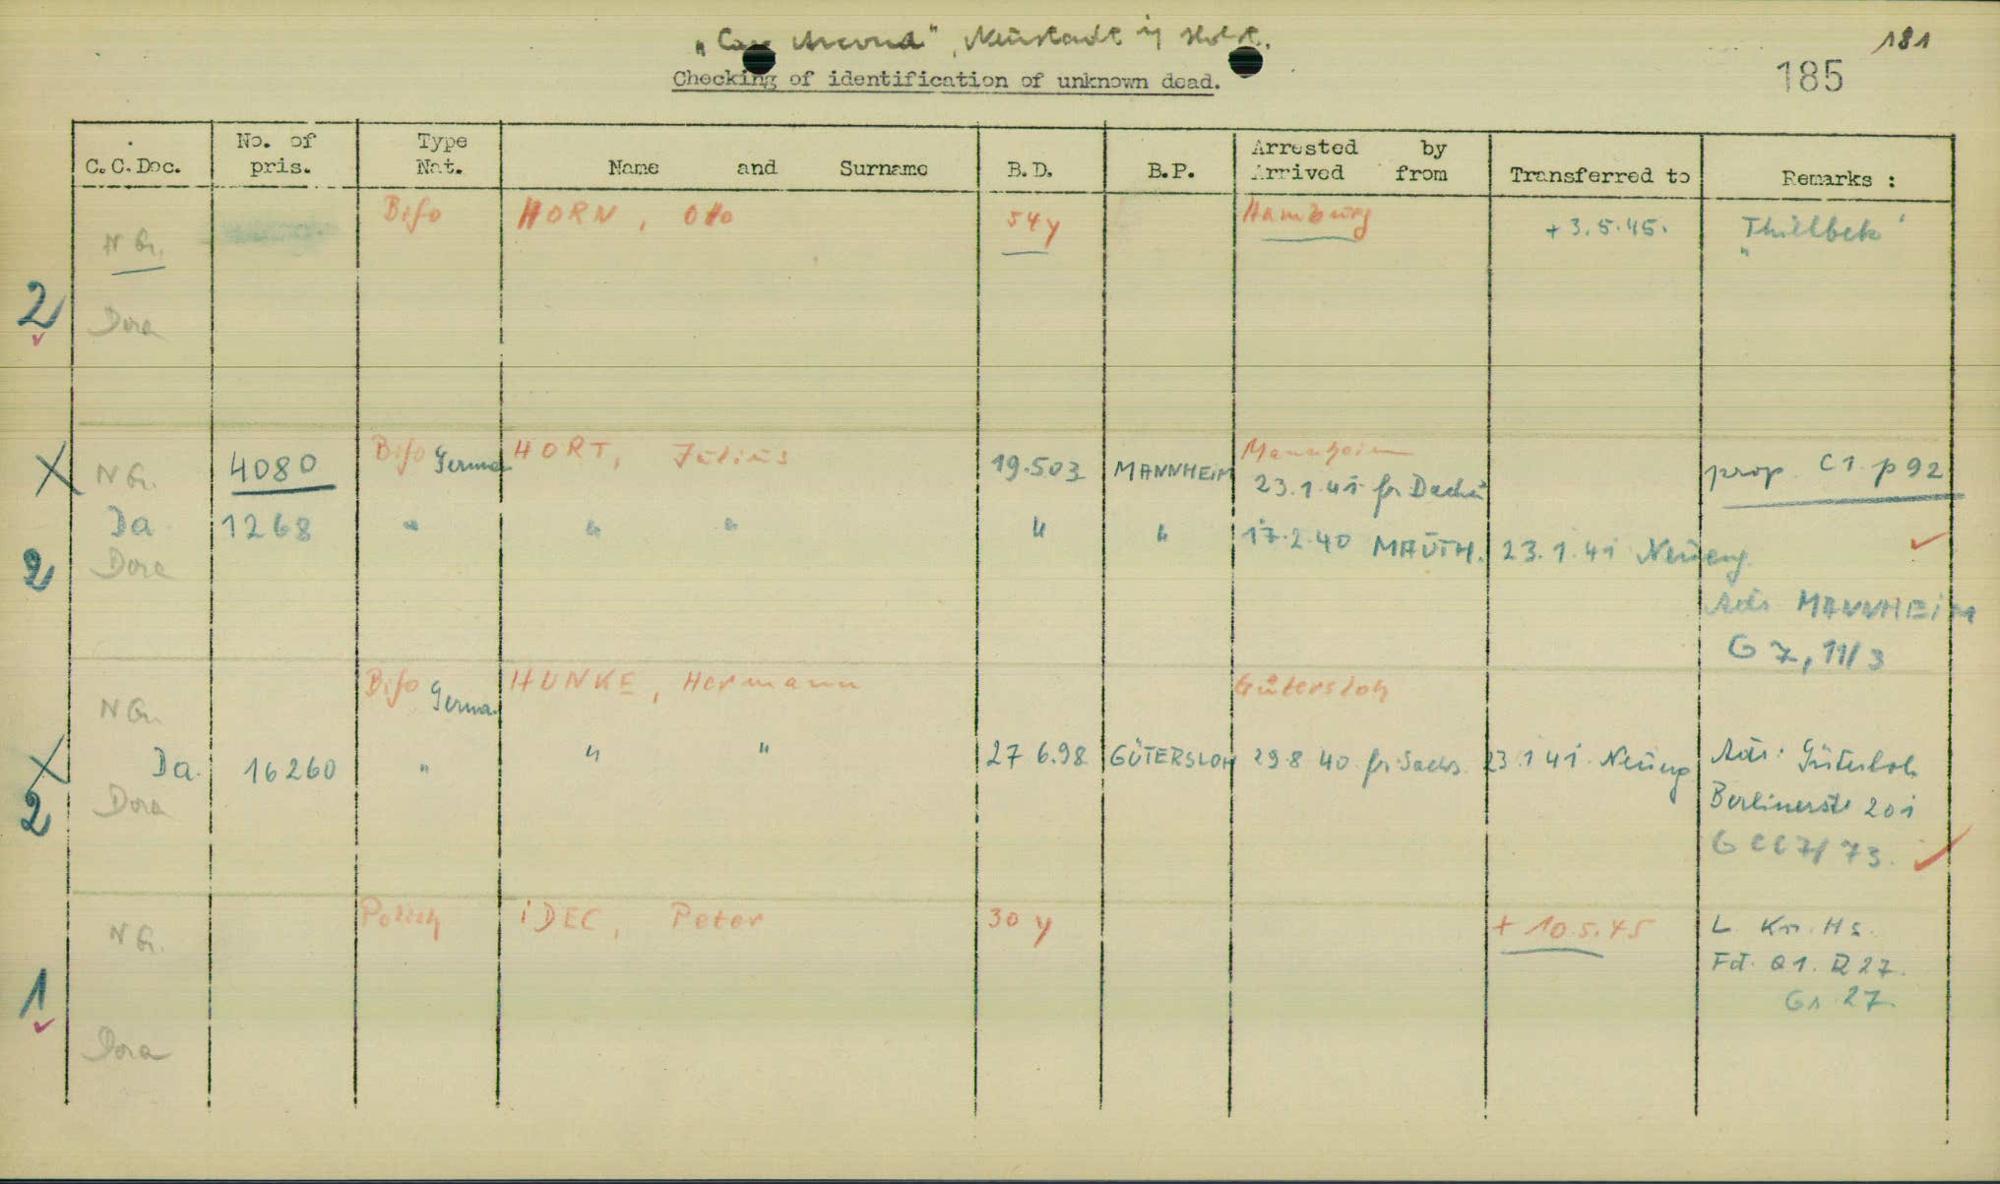 "Cap Arcona", Neustadt in Holst.
181
185
Checking of identification of unknown dead.
C.C.Doc. No. of pris. Type Nat. Name and Surname B.D. B.P. Arrested by Arrived from Transferred to Remarks :
N G. Bifo HORN, Otto 54 y Hamburg + 3.5.45. "Thielbek"
2 Dora
X N G. 4080 Bifo German HORT, Julius 19.5 03 MANNHEIM Mannheim
23.1.41 fr Dachau prop. C1. p 92
Da 1268 " " " " " 17.2.40 MAUTH. 23.1.41 Neueng.
2 Dora
Adr MANNHEIM
G 7, 11/3
N G. Bifo German HUNKE, Hermann Gütersloh
X Da. 16260 " " " 27 6.98 GÜTERSLOH 29.8 40 fr. Sachs. 23.1 41. Neueng Adr: Gütersloh
2 Dora Berlinerstr 201
G CC7/ 73.
N G. Polish IDEC, Peter 30 y + 10.5.45 L. Kr. Hs.
Fd. Q1. R 27.
1 Gr. 27.
Dora